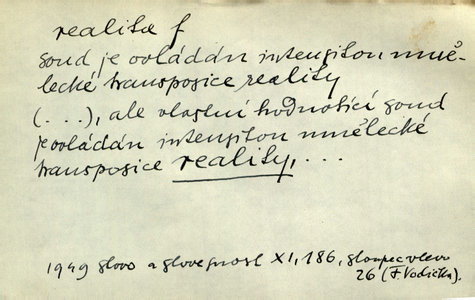 realita f
soud je ovládán intensitou umě-
lecké transposice reality
(...), ale vlastní hodnotící soud
je ovládán intensitou umělecké
transposice reality, ...
1949 Slovo a slovesnost XI, 186, sloupec vlevo
26 (F. Vodička).